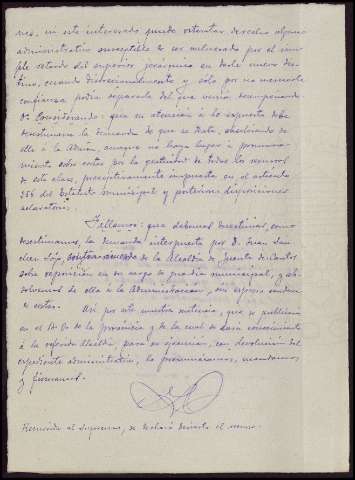 nes, en este interesado pueda ostentar derecho alguno
administrativo susceptible de ser vulnerado por el sim-
ple retardo del superior jerárquico en darle nuevo des-
tino, cuando discrecionalmente y solo por su inmerecida
confianza podía separarle del que venía desempeñando
Considerando: que en atención a lo expuesto debe
desestimarse la demanda de que se trata, absolviendo de
ella a la Admón, aunque no haya lugar a pronuncia-
miento sobre costas por la gratuidad de todos los recursos
de esta clase, preceptivamente impuesta en el artículo
256 del Estatuto municipal y posteriores disposiciones
aclaratorias.
Fallamos: que debemos desestimar, como
desestimamos, la demanda interpuesta por D. Juan San-
chez contra acuerdo de la Alcaldía de Fuente de Cantos
sobre reposición en su cargo de guardia municipal, y ab-
solvemos de ella a la Administración, sin expresa condena
de costas.
Así por esta nuestra sentencia, que se publicará
en el B. O. de la provincia y de la cual se dará conocimiento
a la referida Alcaldía, para su ejecución, con devolución del
expediente administrativo, lo pronunciamos, mandamos
y firmamos.
Recurrida al Supremo, se declaró desierto el recurso.